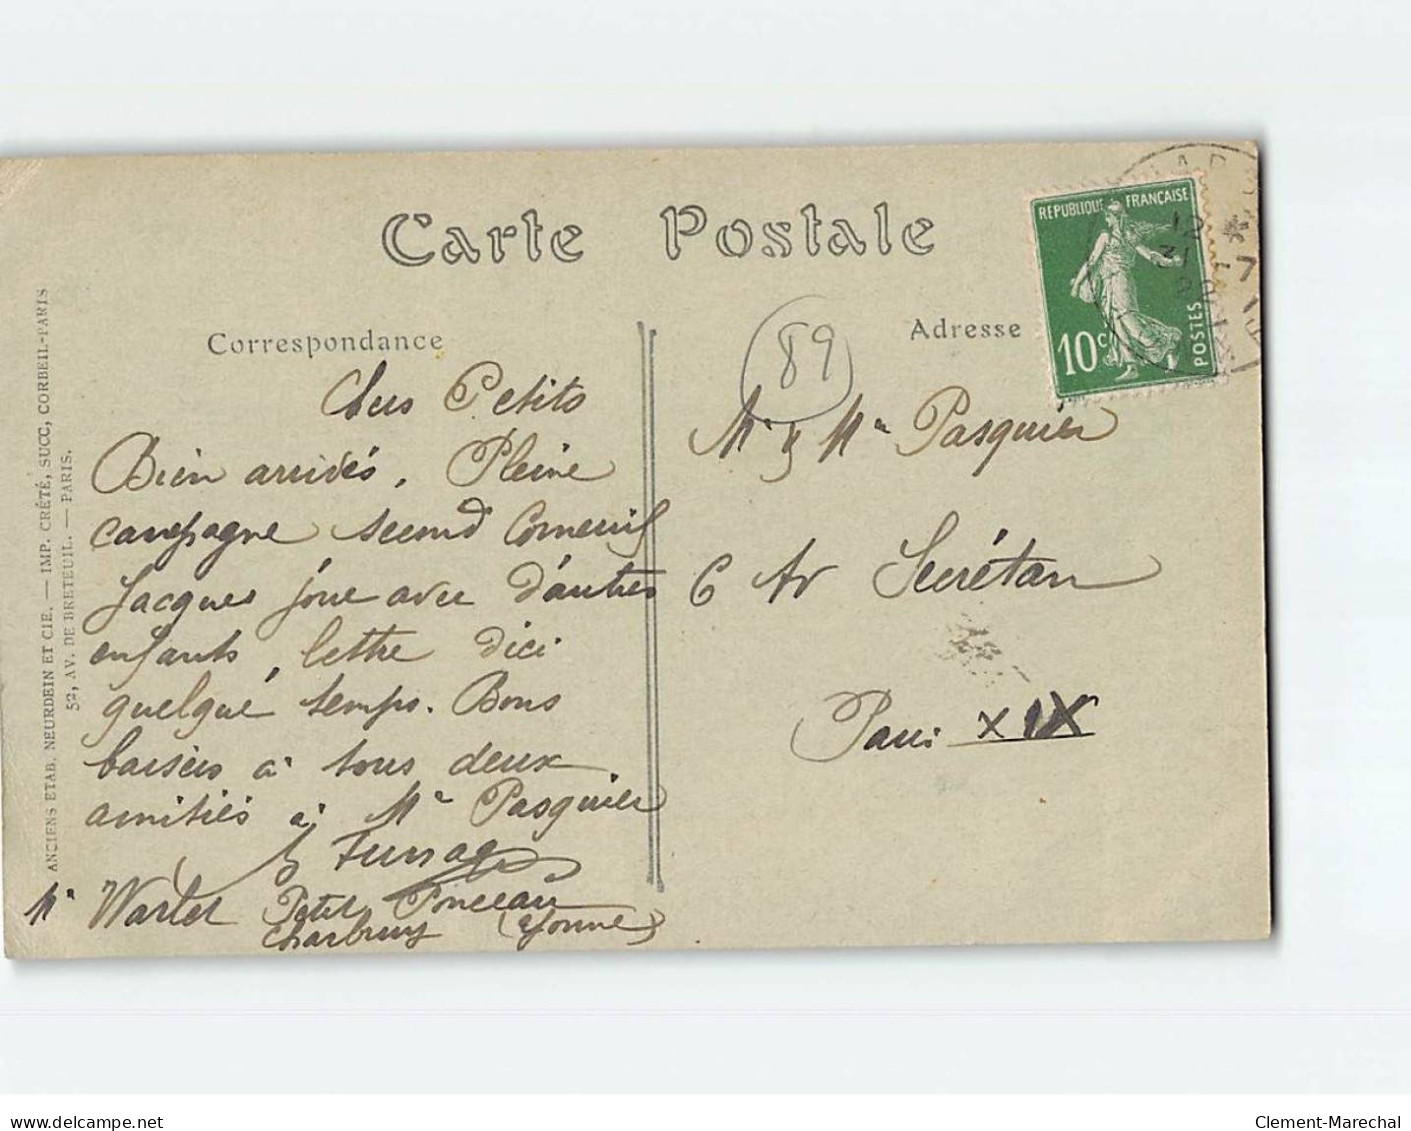 Carte Postale
Correspondance
Chers Petits
Bien arrivés, Pleine
campagne second Corneuil
Jacques joue avec d'autres
enfants, lettre dici
quelque temps. Bons
baisers à tous deux
amitiés à Me Pasquier
Me Wartet Petit Ponceau
Charbuy (Yonne)
89
Adresse
Mr & Me Pasquier
6 Av Secrétan
Paris XIX
REPUBLIQUE FRANÇAISE
10c
POSTES
ANCIENS ETAB. NEURDEIN ET CIE. — IMP. CRÉTÉ, SUCC, CORBEIL-PARIS
52, AV. DE BRETEUIL. — PARIS.
www.delcampe.net
Clement-Marechal